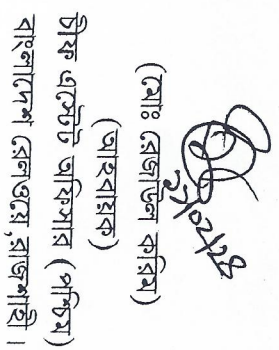 (মোঃ রেজাউল করিম)
(আহবায়ক)
চীফ এস্টেট অফিসার (পশ্চিম)
বাংলাদেশ রেলওয়ে, রাজশাহী।